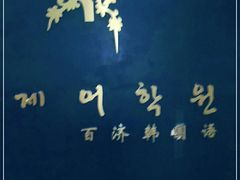 제 어 학 원
百济韩国语